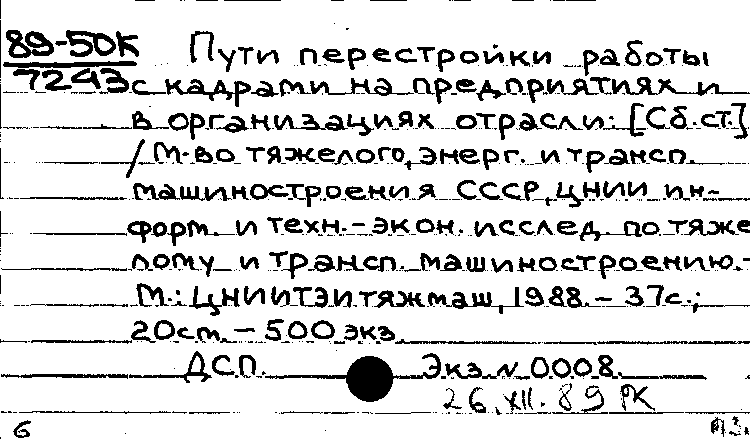 89-50К Пути перестройки работы
7243 с кадрами на предприятиях и
в организациях отрасли: [Сб.ст.]
/ М-во тяжелого, энерг. и трансп.
машиностроения СССР, ЦНИИ ин-
форм. и техн.-экон. исслед. по тяже
лому и трансп. машиностроению.-
М.: ЦНИИТЭИтяжмаш, 1988.- 37с.;
20см. - 500 экз.
ДСП. Экз.N 0008.
26.XII.89 РК
6